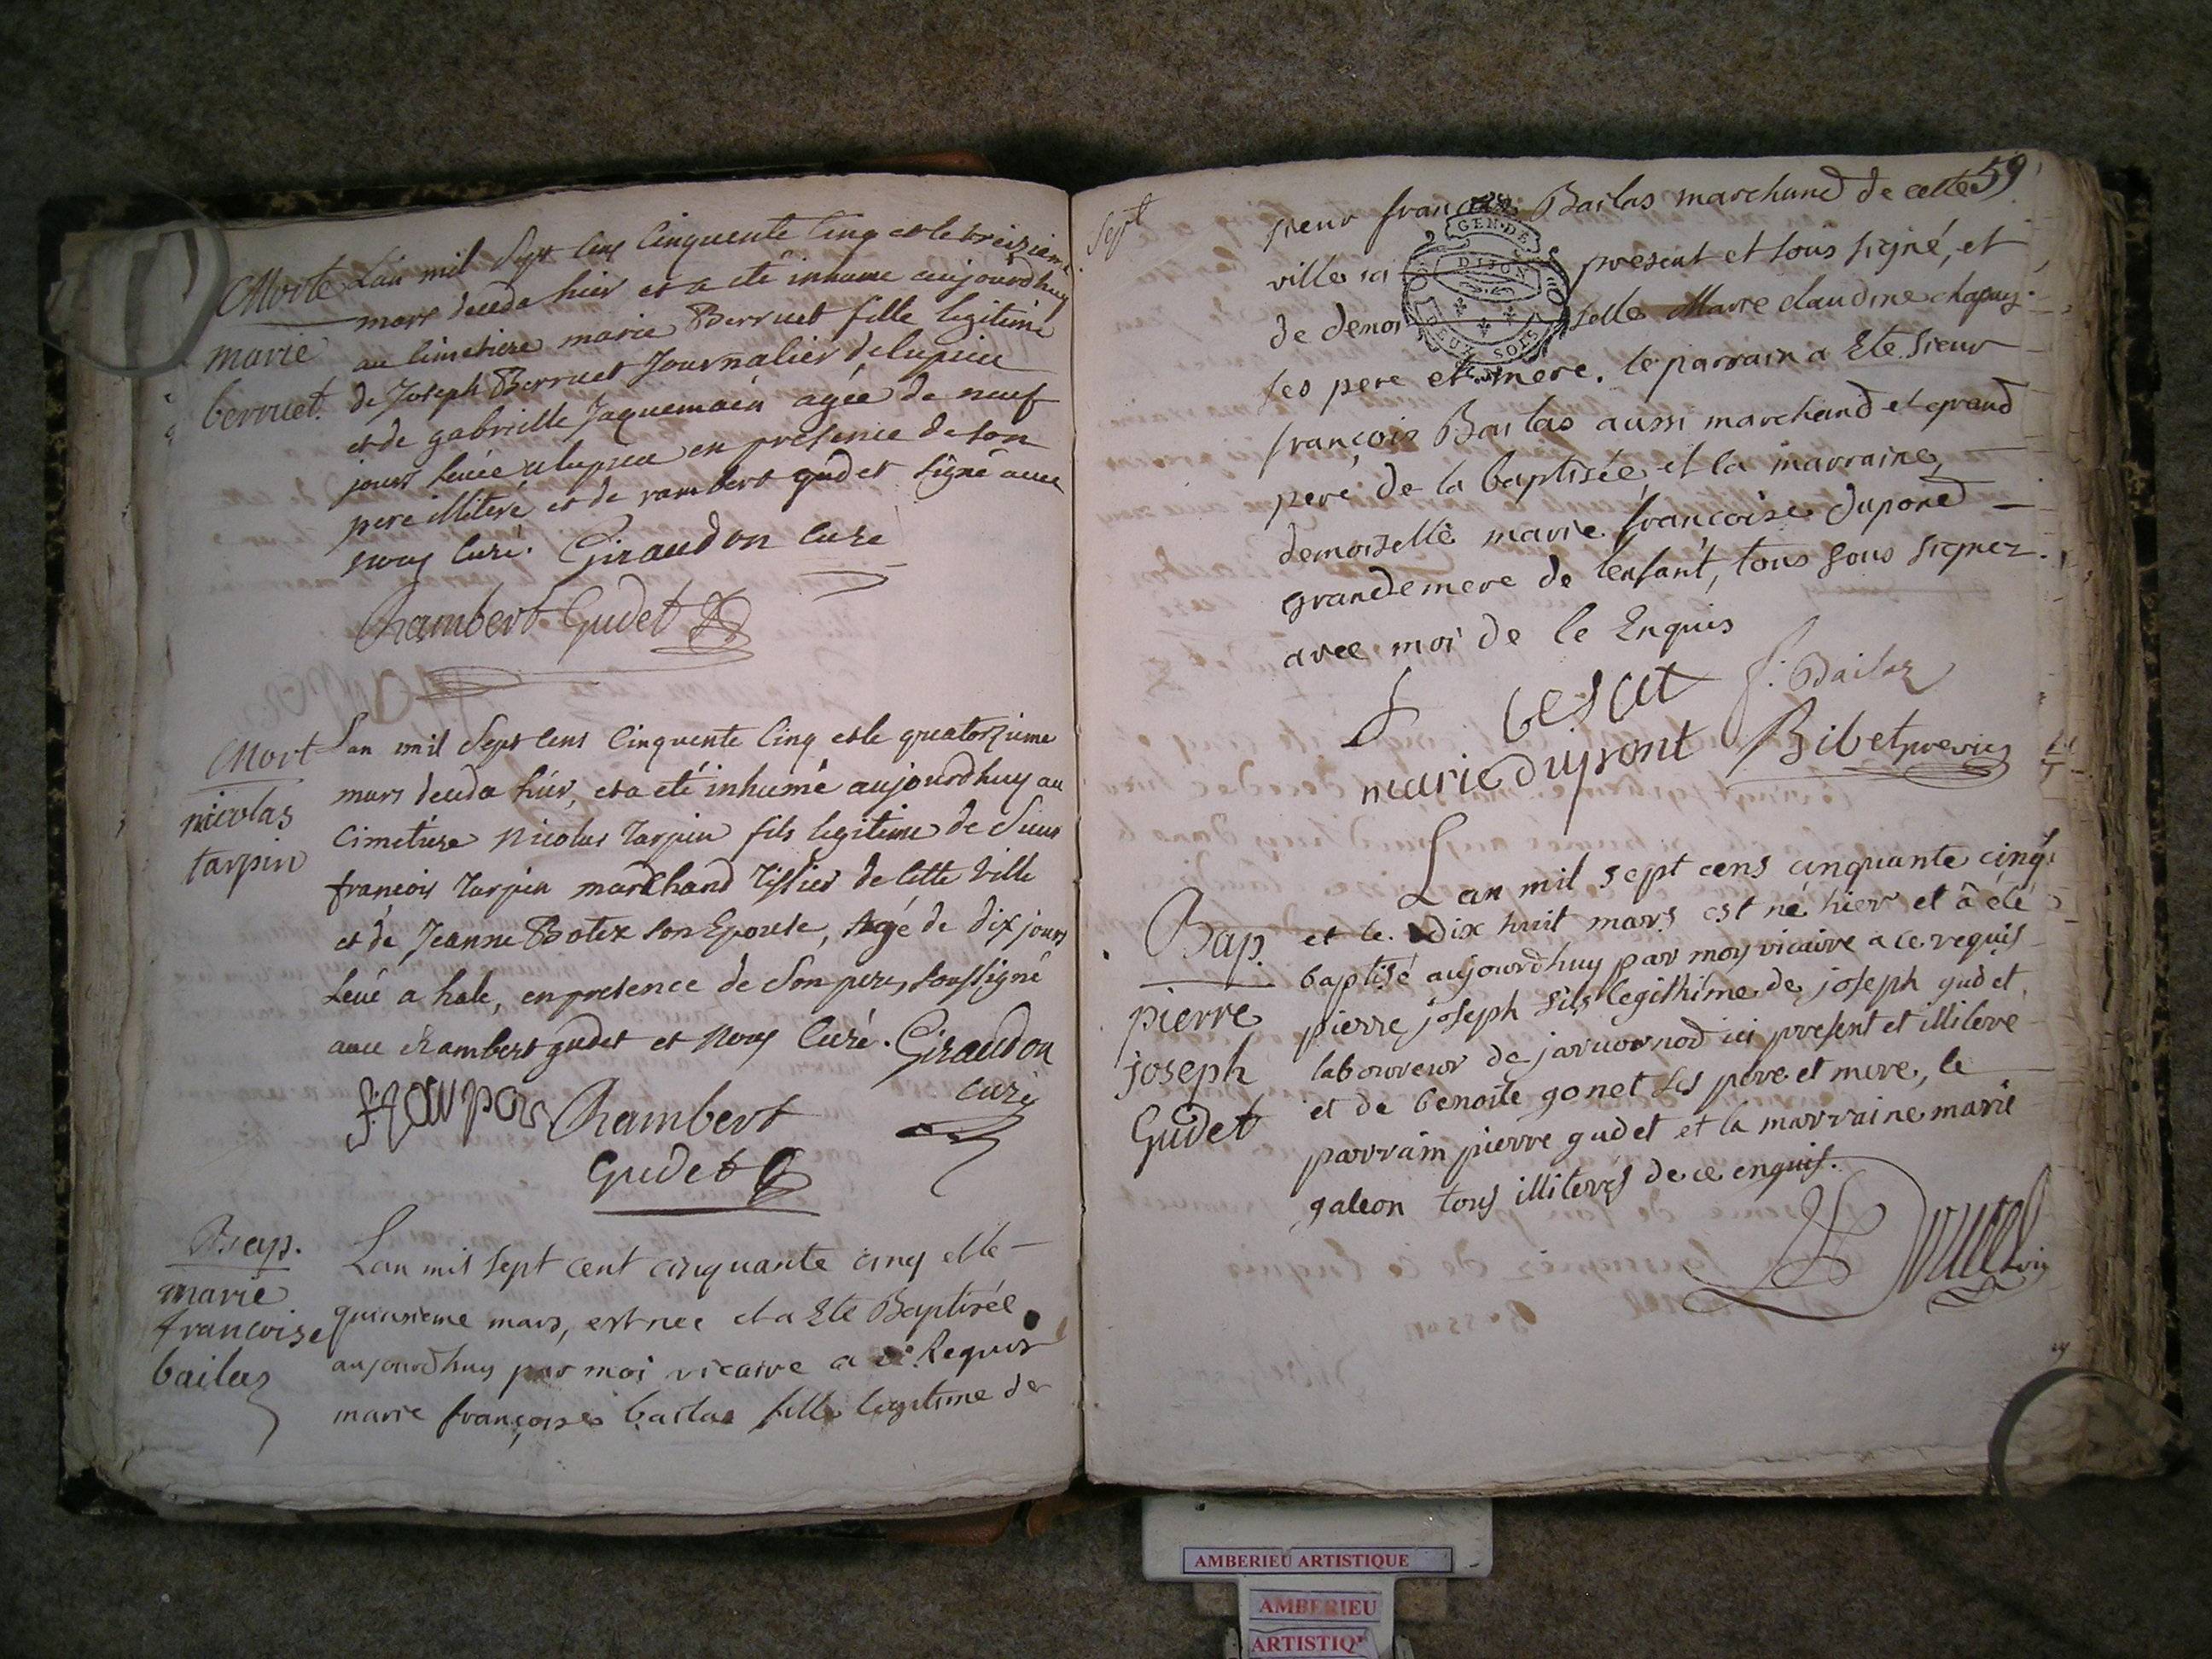 Morte
marie
berruet.
L'an mil Sept Cens Cinquente Cinq et le treizieme
mars deceda hier et a eté inhume aujourdhuy
au Cimetiere marie Berruet fille legitime
de Joseph Berruet Journalier delupieu
et de gabrielle Jaquemain agée de neuf
jours levée alupieu en présence de son
pere illiteré et de rambert gudet signé avec
nous Curé. Giraudon Curé
Chambert Gudet
Mort
nicolas
tarpin
Lan mil Sept Cens Cinquente Cinq et le quatorzieme
mars deceda hier, et a eté inhumé aujourdhuy au
Cimetiere Nicolas Tarpin fils legitime de Sieur
francois Tarpin marchand Tissier de Cette Ville
et de Jeanne Botex son Epouse, Agé de dix jours
Levé a hale, en presence de Son pere, soussigné
avec Rambert gudet et Nous Curé. Giraudon
curé
Chambert
Gudet
Bap.
marie
francoise
bailas
Lan mil sept cent cinquante cinq et le
quinzieme mars, est nee et a Ete Baptisée
aujourdhuy par moi vicaire a ce Requis
marie françoise bailas fille legitime de
59
Sept
sieur françois Bailas marchand de cette
ville ici present et sous signé, et
GEN. DE
DIJON
DEUX SOLS
de demoiselle Marie claudine chapuy
ses pere et mere. le parrain a Ete Sieur
françois Bailas aussi marchand et grand
pere de la baptisée, et la marraine
demoiselle marie françoise dupond
grandemere de lenfant, tous sous signez
avec moi de ce Enquis
F. Bailas
marie dupont Bibet
Bap.
pierre
joseph
Gudet
Lan mil sept cens cinquante cinq
et le dix huit mars est né hier et â été
baptisé aujourdhuy par moy vicaire a ce requis
pierre joseph fils legithime de joseph gudet
laboureur de jarvornod ici present et illiteré
et de benoite gonet ses pere et mere, le
parrain pierre gudet et la marraine marie
galeon tous illiterés de ce enquis.
AMBERIEU ARTISTIQUE
AMBERIEU
ARTISTIQ